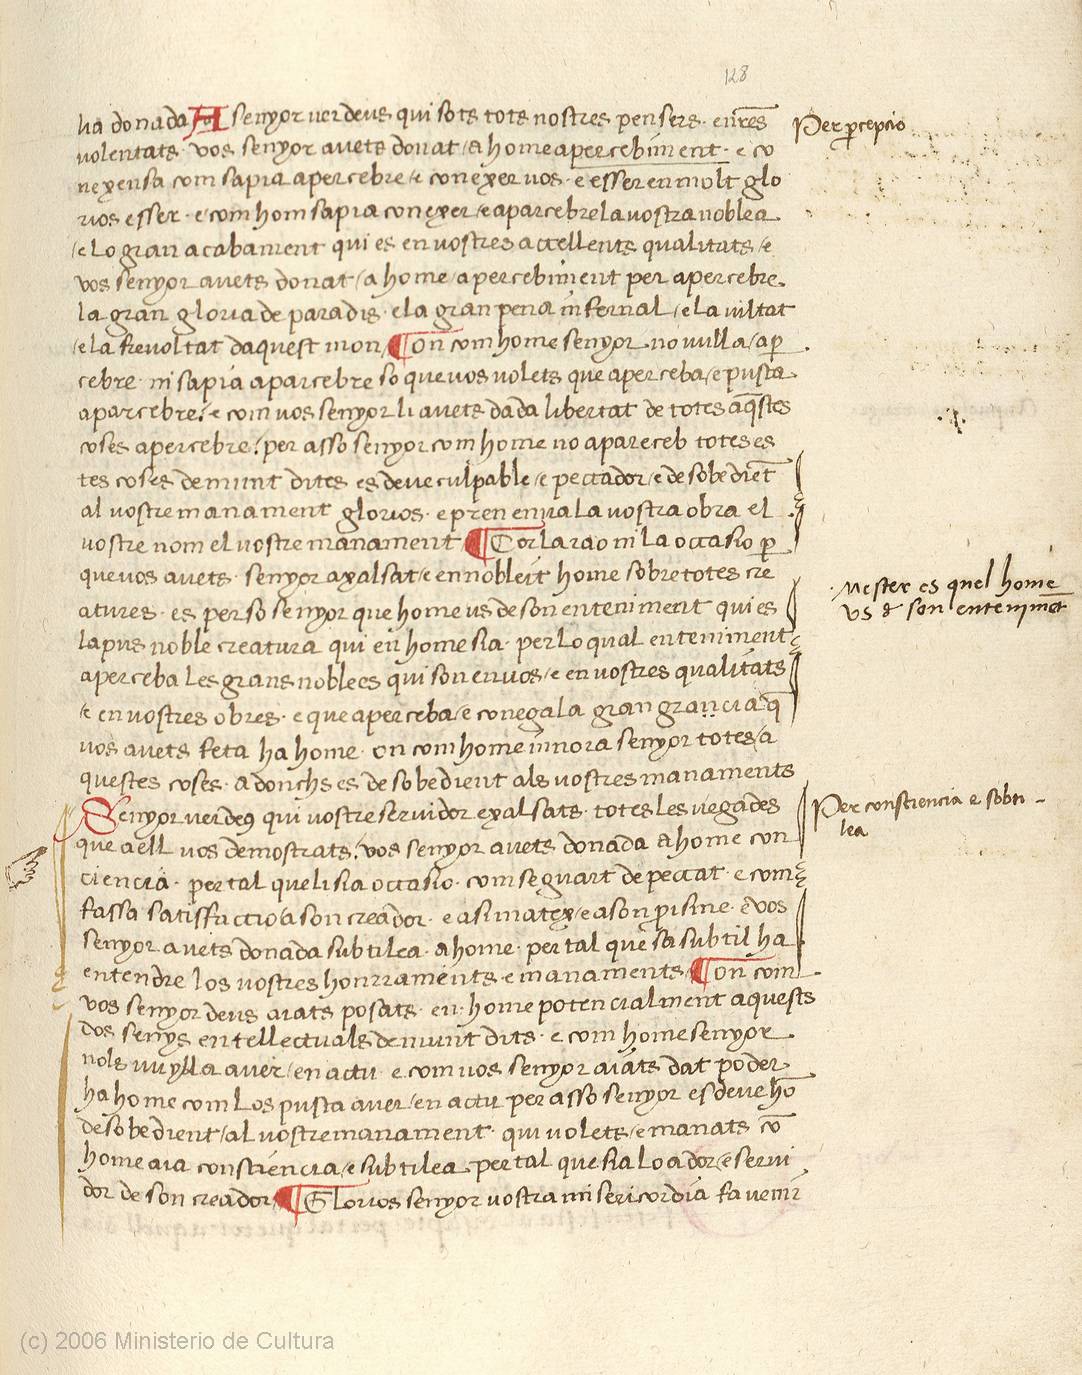 128
ha donada A senyor ver deus qui sots tots nostres pensers · en res
volentats · vos senyor avets donat / a home apercebiment · e co
nexensa com sapia apercebre / e conexer vos · e esser en molt glo
rios esser · e com hom sapia conexer / e aparcebre la vostra noblea
/ e lo gran acabament qui es en vostres accellents qualitats / e
vos senyor avets donat / a home / apercebiment per apercebre
la gran gloria de paradis · e la gran pena infernal / e la viltat
/ e la frevoltat daquest mon ¶ On com home senyor no vulla / aper
cebre · ni sapia aparcebre so que vos volets que aperceba / e pusta
aparcebre / e com vos senyor li avets dada libertat de totes aqstes
coses apercebre / per asso senyor com home no apareceb totes es
tes coses demunt dites es deve culpable / e peccador / e desobedient
al vostre manament glorios · e pren en va la vostra obra el
vostre nom el vostre manament ¶ Tot la rao ni la occasio per
que vos avets · senyor axalsat / e ennobleit home sobre totes cre
atures · es per so senyor que home us de son enteniment qui es
la pus noble creatura qui en home sia · per lo qual enteniment
aperceba les grans noblees qui son en vos / e en vostres qualitats
/ e en vostres obres · e que aperceba / e conega la gran gracia q
vos avets feta ha home · on com home innora senyor totes / a
questes coses · adonchs es desobedient als vostres manaments
Senyor ver deus qui vostre servidor exalsats · totes les vegades
que a ell vos demostrats / vos senyor avets donada a home con
ciencia · per tal que li sia occasio · com se guart de peccat · e com
fassa satisffaccio a son creador · e asi matex / e a son prisme · e vos
senyor avets donada subtilea · a home · per tal que sa subtil ha
entendre los vostres honrraments · e manaments ¶ On com
vos senyor deus aiats posats · en home potencialment aquests
dos senys entellectuals demunt dits · e com home senyor
nols vuylla aver / en actu · e com vos senyor aiats dat poder
ha home com los pusta aver / en actu per asso senyor es deve ho
desobedient / al vostre manament · qui volets / e manats co
home aia consciencia / e subtilea per tal que sia loador / e servi
dor de son creador ¶ Glorios senyor vostra misericordia fa venir
Per pcepcio
Mester es quel home
us d son entenimet
Per consciencia e subti-
lea
(c) 2006 Ministerio de Cultura